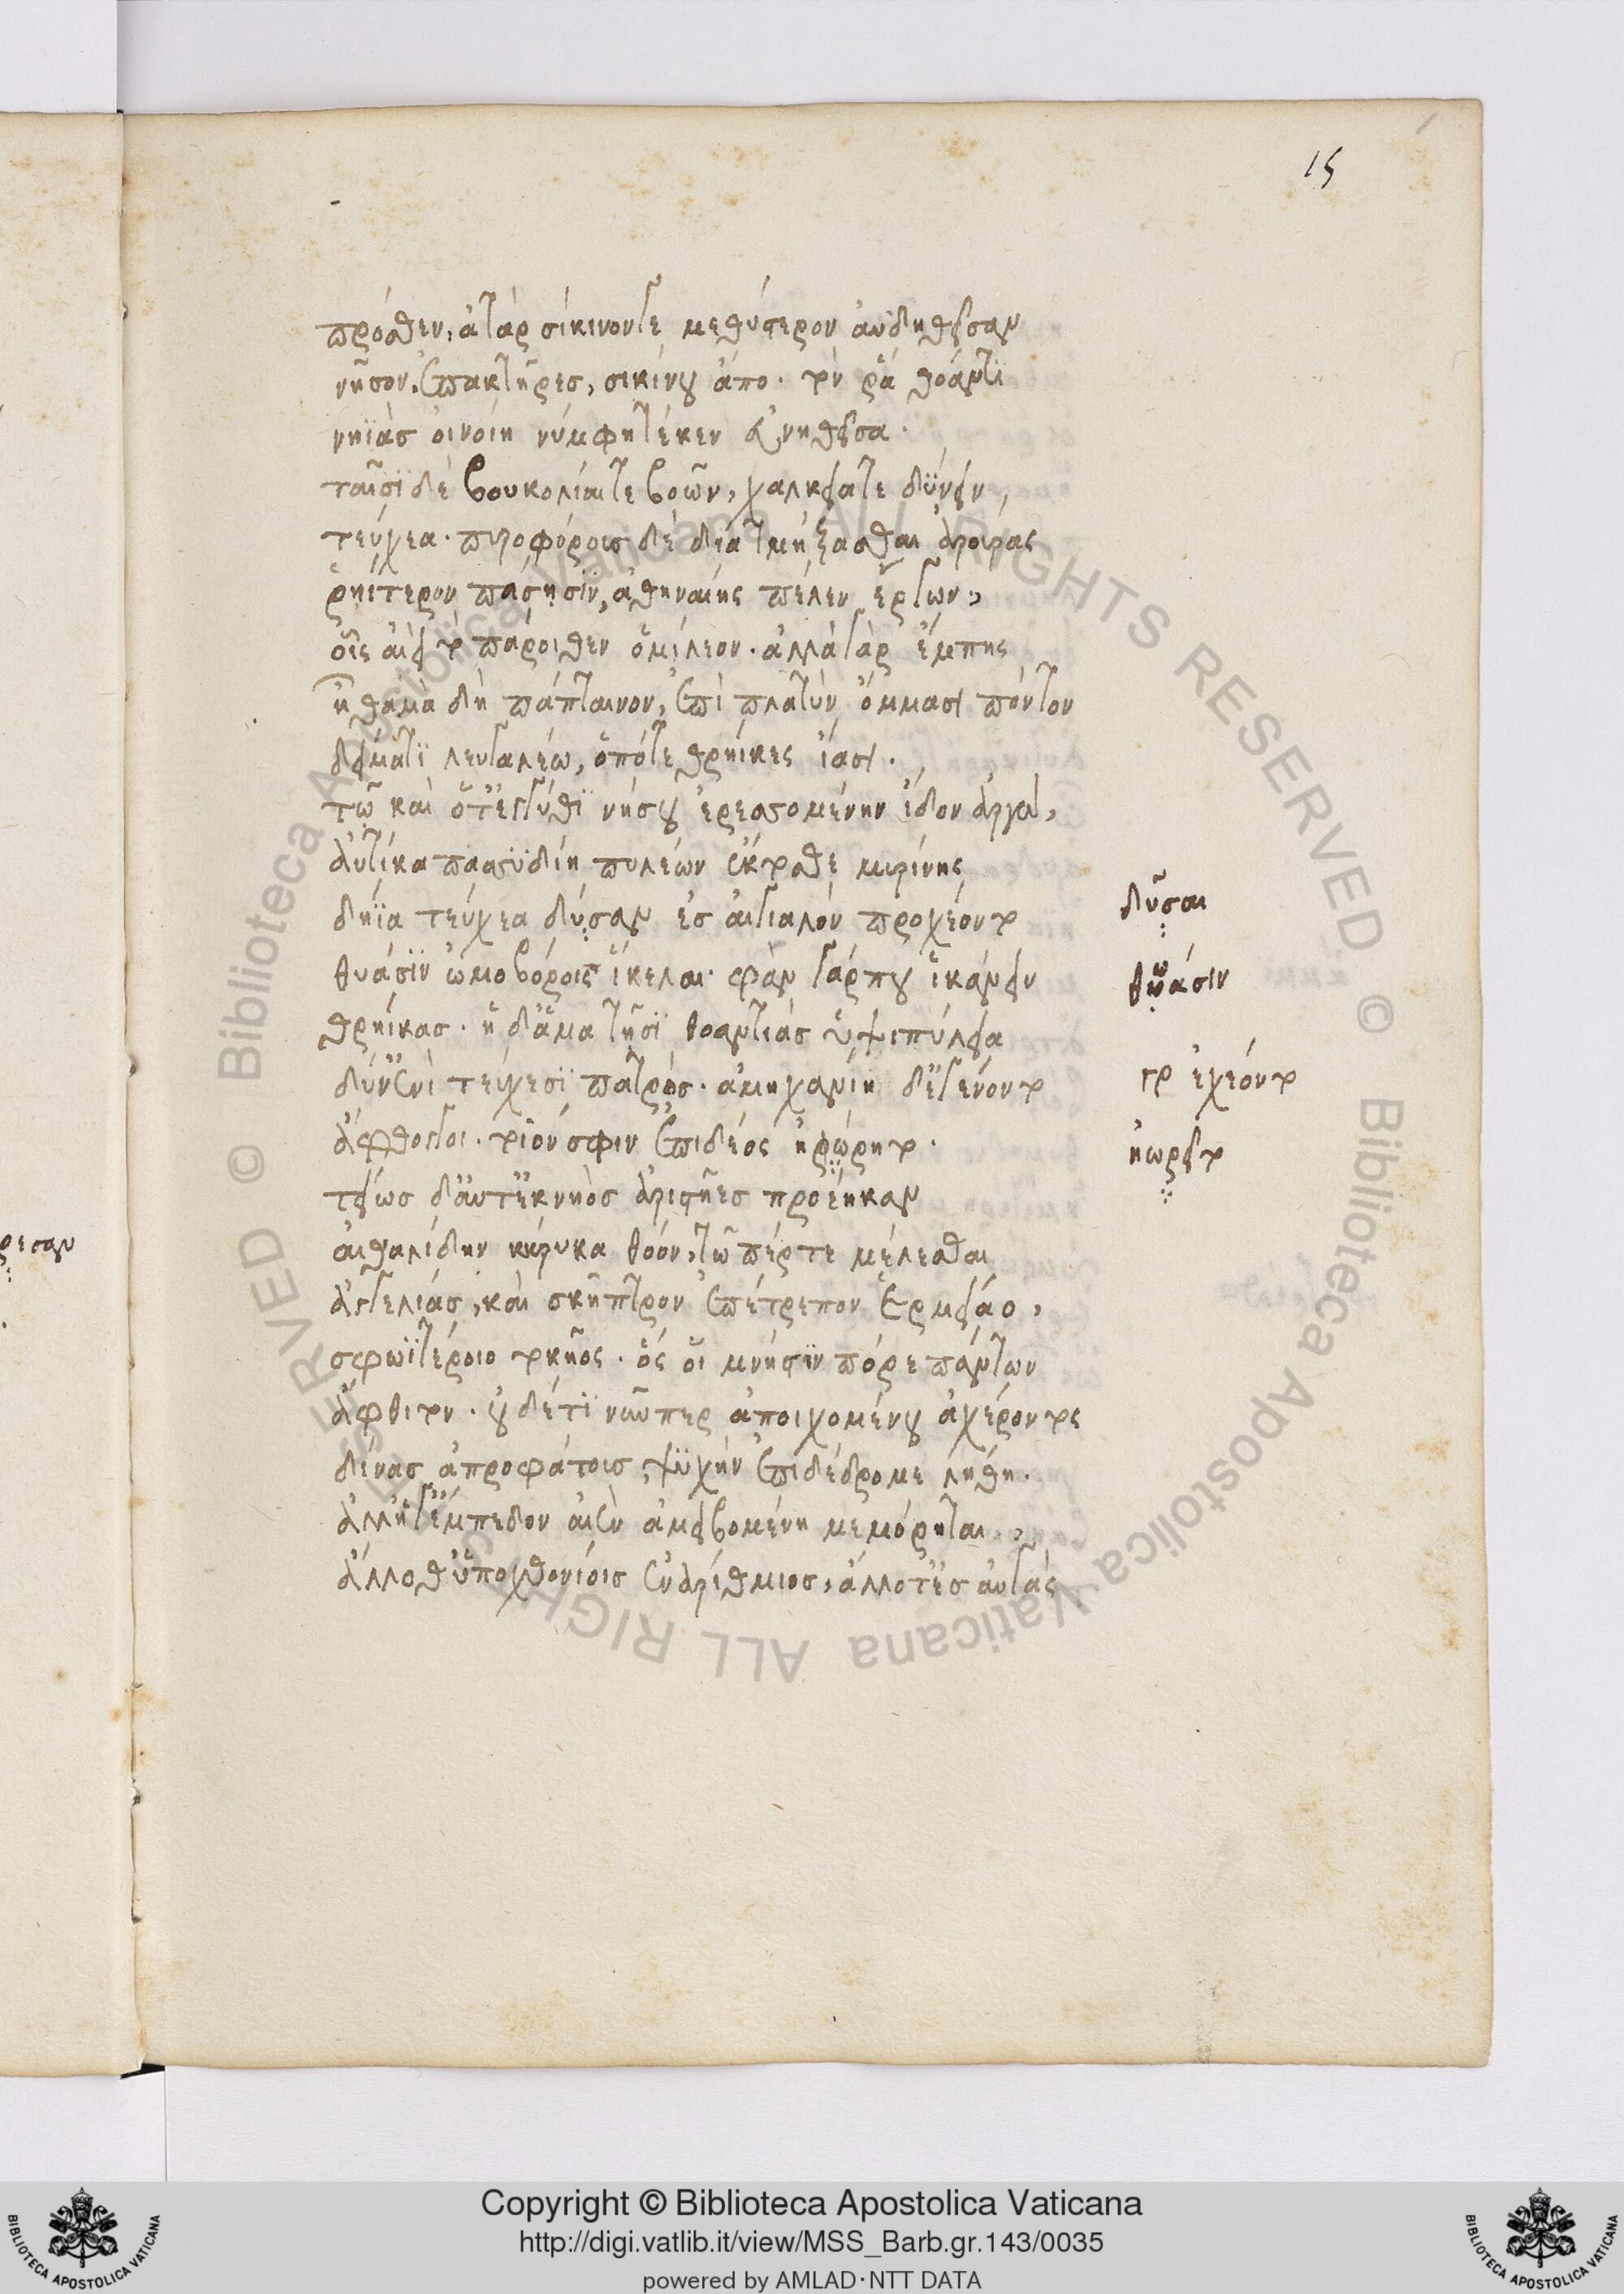 15
πρόσθεν, ἀτὰρ σίκινόν γε μεθύστερον αὐδηθεῖσαν
νῆσον, ἐπακτῆρες, σικίνου ἄπο· τόν ῥα θόαντι
νηϊὰς οἰνοίη νύμφη τέκεν εὐνηθεῖσα·
ταῖσι δὲ βουκολίαι τε βοῶν, χάλκειά τε δύνειν,
τεύχεα· πυροφόρους δὲ διατμήξασθαι ἀρούρας
ῥηίτερον πάσῃσιν, ἀθηναίης πέλεν ἔργων,
οἷς αἰεὶ τὸ πάροιθεν ὁμίλεον· ἀλλὰ γὰρ ἔμπης
ἦ θαμὰ δὴ πάπταινον, ἐπὶ πλατὺν ὄμμασι πόντον
δείματι λευγαλέω, ὁπότε θρήικες ἴασι·
τῷ καὶ ὅτ' ἐγγύθι νήσου ἐρεσσομένην ἴδον ἀργώ,
αὐτίκα πασσυδίη πυλέων ἔκτοσθε μυρίνης
δήϊα τεύχεα δύσαν ἐς αἰγιαλὸν προχέοντο
δῦσαι
θυάσιν ὠμοβόροις ἴκελαι· φὰν γάρ που ἱκάνειν
θυάσιν
θρήικας· ἡ δ' ἅμα τῇσι θοαντιὰς ὑψιπύλεια
δῦν' ἐνὶ τεύχεσι πατρός· ἀμηχανίη δ' ἐγένοντο
γρ ἐχέοντο
ἄφθογγοι· τοῖόν σφιν ἐπὶ δέος ἠώρητο·
ἠωρεῖτο
τείως δ' αὖτ' ἐκ νηὸς ἀριστῆες προέηκαν
αἰθαλίδην κήρυκα θοόν, τῷ πέρ τε μέλεσθαι
ἀγγελίας, καὶ σκῆπτρον ἐπέτρεπον Ἑρμείαο,
σφωϊτέροιο τοκῆος· ὅς οἱ μνῆστιν πόρε πάντων
ἄφθιτον· οὐδ' ἔτι νῦν περ ἀποιχομένου ἀχέροντος
δίνας ἀπροφάτους, ψυχὴν ἐπιδέδρομε λήθη·
ἀλλ' ἥγ' ἔμπεδον αἰὲν ἀμειβομένη μεμόρηται,
ἄλλοθ' ὑποχθονίοις ἐναρίθμιος, ἄλλοτ' ἐς αὐγὰς
Copyright © Biblioteca Apostolica Vaticana
http://digi.vatlib.it/view/MSS_Barb.gr.143/0035
powered by AMLAD·NTT DATA